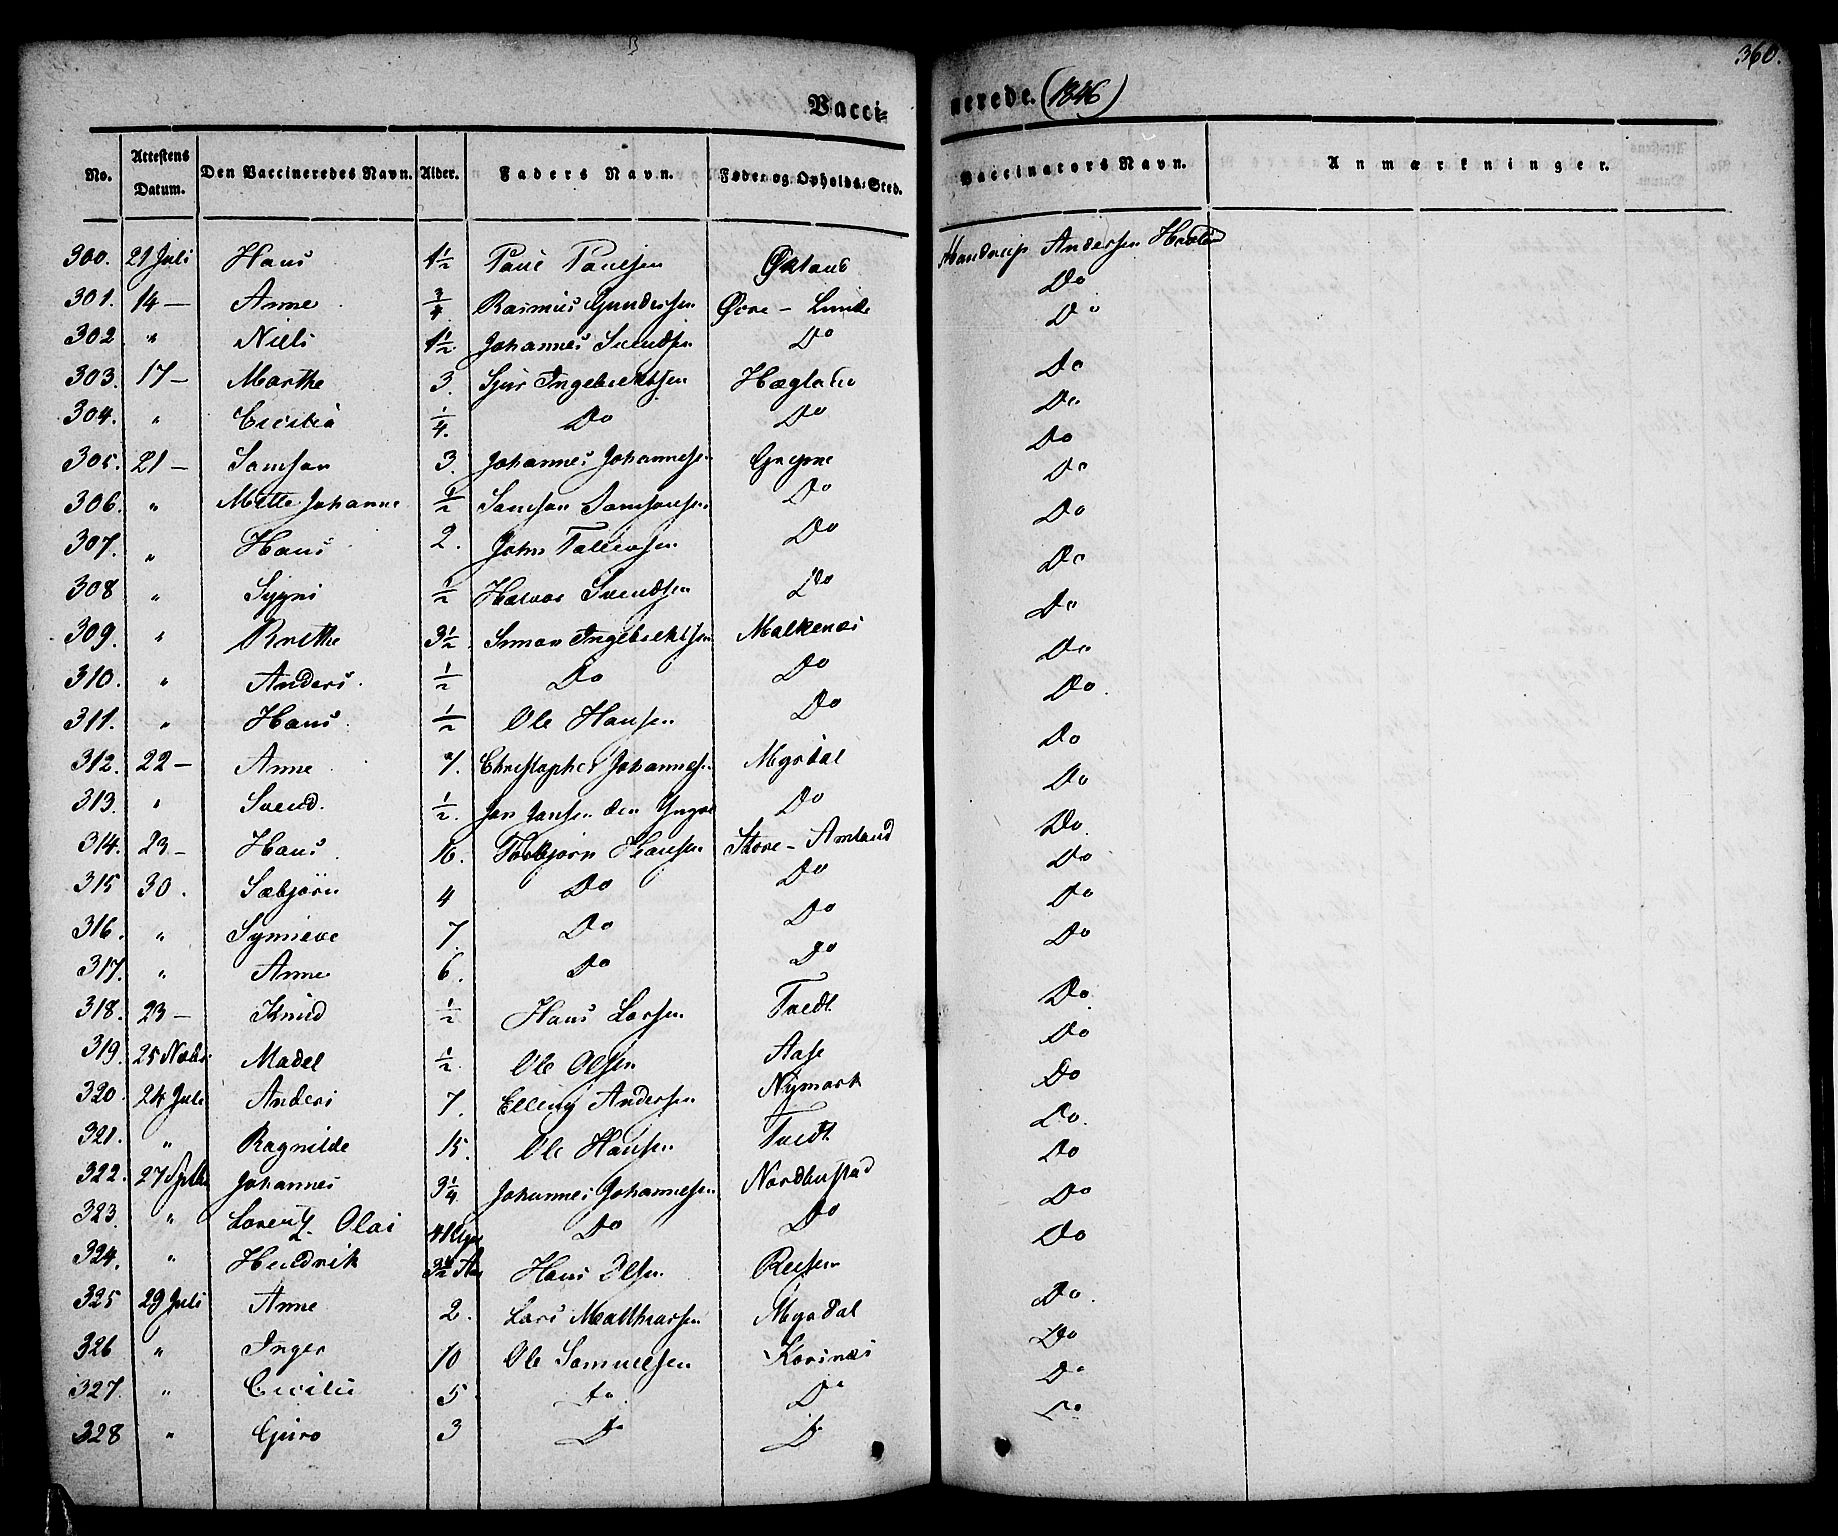 360.
Vacci= nerede. (1846)
No. Attestens Datum. Den Vaccineredes Navn. Alder. Faders Navn. Føde- og Opholds-Sted. Vaccinators Navn. Anmærkninger.
300. 21 Juli Hans 1½ Poul Poulsen Økland Mandrup Andersen
301. 14 — Anne ¾ Rasmus Gundersen Øvre - Lunde Do
302 " Niels 1½ Johannes Svendsen Do Do
303. 17 — Marthe 3. Sjur Ingebrektsen Hægland Do
304. " Cecilia ¼. Do Do Do
305. 21 — Samson 3. Johannes Johannesen Do
306. " Mette Johanne ½ Samson Samsonsen Do Do
307. " Hans 2. John Do Do
308 " Sygni ½ Halvor Svendsen Do Do
309. " Brethe 3½ Simon Ingebrektsen Malkenes Do
310. " Anders. ½ Do Do Do
311. " Hans. ½ Ole Hansen Do Do.
312. 22 — Anne 7. Christopher Johannesen Mysdal Do
313. " Svend. ½. Jon Jonsen den Yngre Do Do
314. 23 — Hans 16. Torbjørn Hansen Store - Amland Do.
315 30. Sæbjörn 4 Do Do Do
316. " Synneve 7. Do Do Do
317. " Anne 6. Do Do Do
318. 23 — Knud ½ Hans Larsen Tvedt Do
319. 25 Novbr Madel ½. Ole Olsen Aase Do
320. 24 Juli Anders 7. Elling Andersen Nymark Do
321. " Ragnilde 15. Ole Hansen Tvedt Do.
322. 27 Septbr Johannes 3¼ Johannes Johannesen Nordhustad Do
323. " Lorentz Olai Do Do Do
324. " Hendrik 3½ Aar Hans Olsen Do
325 29 Juli Anne 2. Lars Matthiassen Mysdal Do.
326 " Inger 10 Ole Samuelsen Korsnæs Do
327. " Cecilie 5 Do. Do Do
328 " Guro 3 Do Do Do